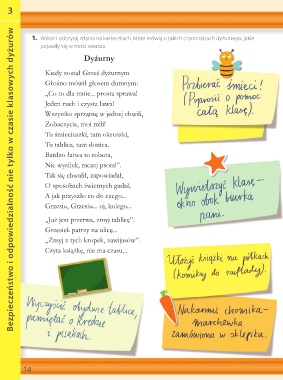 3
Bezpieczeństwo i odpowiedzialność nie tylko w czasie klasowych dyżurów
1. Wskaż i odczytaj zdania na karteczkach, które mówią o takich czynnościach dyżurnego, jakie
pojawiły się w treści wiersza.
Dyżurny
Kiedy został Grześ dyżurnym
Głośno mówił głosem durnym:
„Co to dla mnie... prosta sprawa!
Jeden ruch i czysta ława!
Wszystko sprzątnę w jednej chwili,
Zobaczycie, moi mili!
Tu śmieciuszki, tam okruszki,
Tu tablica, tam donica.
Bardzo łatwa to robota,
Nie wysiłek, raczej psota!".
Tak się chwalił, zapowiadał,
O sposobach świetnych gadał,
A jak przyszło co do czego...
Grzesiu, Grzesiu... oj, kolego...
„Już jest przerwa, zmyj tablicę".
Grzesiek patrzy na ulicę...
„Zmyj z tych kropek, zawijasów".
Czyta książkę, nie ma czasu...
Pozbierać śmieci!
(Poprosić o pomoc
całą klasę).
Wywietrzyć klasę –
okno obok biurka
pani.
Ułożyć książki na półkach
(komiksy do szuflady).
Wyczyścić obydwie tablice,
pamiętać o kredzie
i pisakach.
Nakarmić chomika –
marchewka
zamówiona w sklepiku.
14